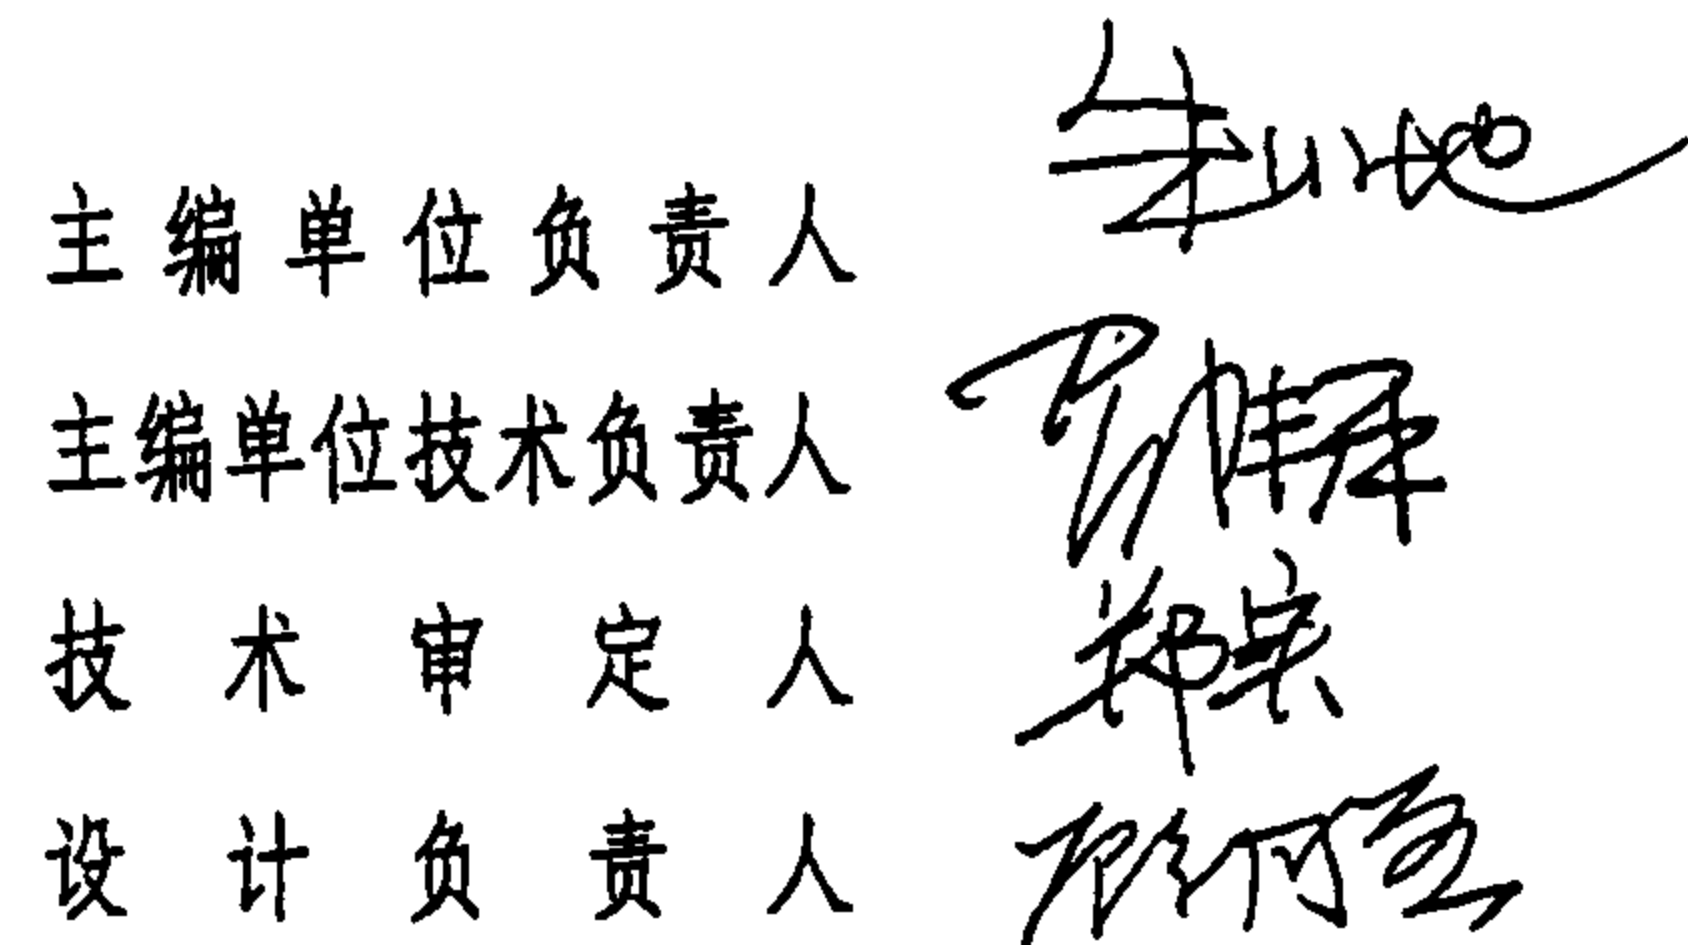 主编单位负责人 朱小地
主编单位技术负责人
技术审定人 郑实
设计负责人